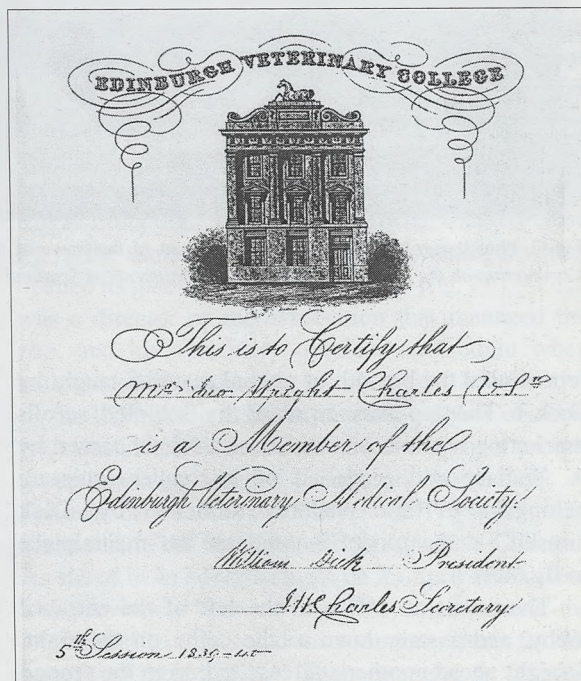 EDINBURGH VETERINARY COLLEGE
This is to Certify that
Mr Geo Wright Charles V.S.
is a Member of the
Edinburgh Veterinary Medical Society.
William Dick President
Charles Secretary
5th Session 1839-40